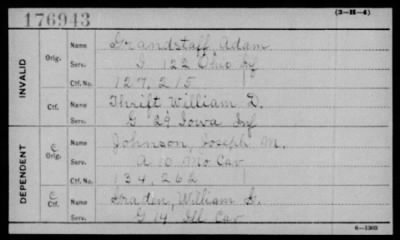 176943
(3—H—4)
INVALID
Orig.
Name Grandstaff, Adam
Serv. G 122 Ohio Inf
Ctf. No. 127,215
Ctf.
Name Thrift, William D.
Serv. G 29 Iowa Inf
DEPENDENT
C Orig.
Name Johnson, Joseph M.
Serv. A 10 Mo Cav
Ctf. No. 134,262
C Ctf.
Name William
Serv. G 14 Ill Cav
6—1303